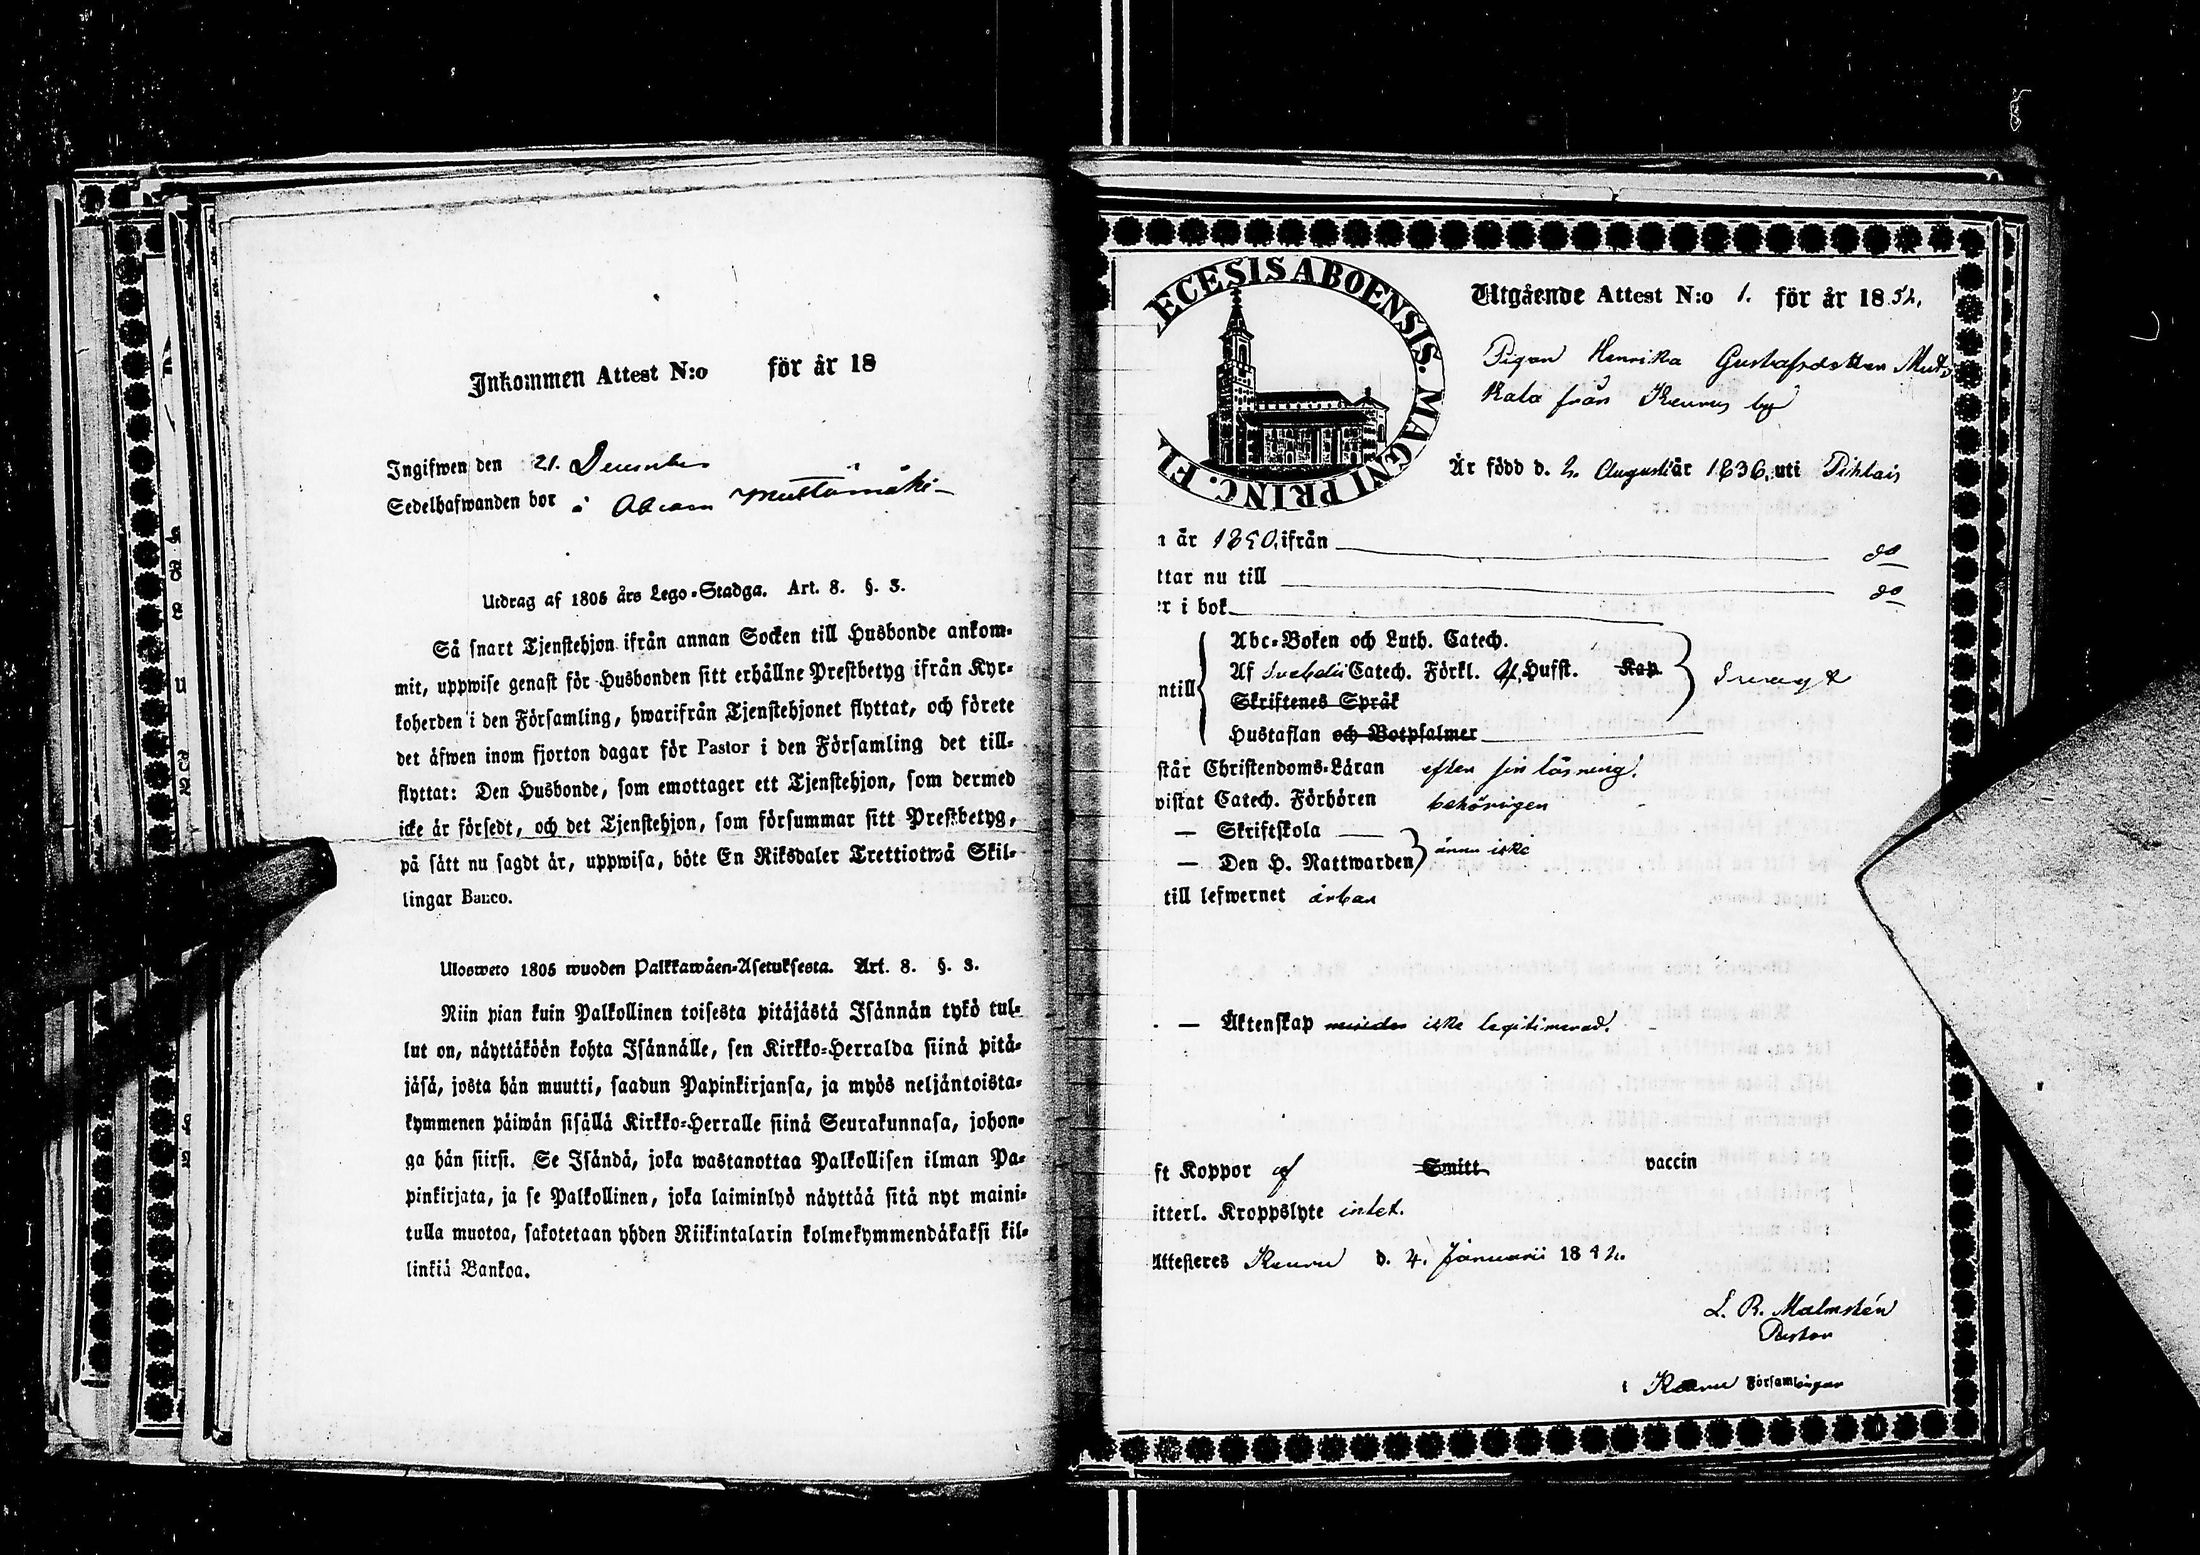 Inkommen Attest N:o för år 18
Ingifwen den 21. December
Sedelhafwanden bor å Abram Muttamäki
Utdrag af 1805 års Lego-Stadga. Art. 8. §. 3.
Så snart Tjenstehjon ifrån annan Socken till Husbonde ankom-
mit, uppwise genast för Husbonden sitt erhållne Prestbetyg ifrån Kyr-
koherden i den Församling, hwarifrån Tjenstehjonet flyttat, och förete
det äfwen inom fjorton dagar för Pastor i den Församling det till-
flyttat: Den Husbonde, som emottager ett Tjenstehjon, som dermed
icke är försedt, och det Tjenstehjon, som försummar sitt Prestbetyg,
på sätt nu sagdt är, uppwisa, böte En Riksdaler Trettiotwå Skil-
lingar Banco.
Ulosweto 1805 wuoden Palkkawäen-Asetuksesta. Art. 8. §. 3.
Niin pian kuin Palkollinen toisesta pitäjästä Isännän tykö tul-
lut on, näyttäköön kohta Isännälle, sen Kirkko-Herralda siinä pitä-
jäsä, josta hän muutti, saadun Papinkirjansa, ja myös neljäntoista-
kymmenen päiwän sisällä Kirkko-Herralle siinä Seurakunnasa, johon-
ga hän siirst. Se Isändä, joka wastanottaa Palkollisen ilman Pa-
pinkirjata, ja se Palkollinen, joka laiminlyö näyttää sitä nyt maini-
tulla muotoa, sakotetaan yhden Riikintalarin kolmekymmendäkaksi kil-
linkiä Bankoa.
ECESIS ABOENSIS. MAGNI PRINC. FI
Utgående Attest N:o 1. för år 1852.
Pigan Henrika Gustafsdotter Mut
kala från Keuru by
Är född d. 2. Augusti år 1836. uti Pihlais
n år 1850. ifrån do
ttar nu till do
er i bok
ntill
Abc-Boken och Luth. Catech.
Af Svebelii Catech. Förkl. 4. Hufst. Kap.
Skriftenes Språk
Hustaflan och Botpsalmer
svagt
står Christendoms-Läran efter sin läsning.
vistat Catech. Förhören behörigen
— Skriftskola
— Den H. Nattwarden ännu icke
till lefwernet ärbar
— Äktenskap icke legitimerad.
ft Koppor af Smitt vaccin
itterl. Kroppslyte intet.
Attesteres Keuru d. 4. Januarii 1852.
L. R. Malmstén
Pastor
i Keuru Församlingar